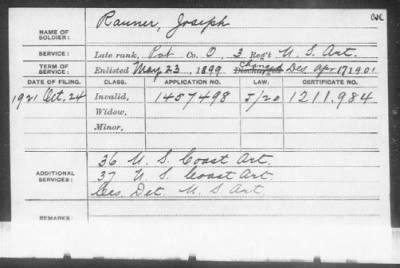 NAME OF SOLDIER: Rauner, Joseph
SERVICE: Late rank, Pvt Co. O, 3 Reg't U. S. Art.
TERM OF SERVICE: Enlisted May 23, 1899 Discharged Changed Dec. Apr 17 1901
DATE OF FILING. CLASS. APPLICATION NO. LAW. CERTIFICATE NO.
1921 Oct. 24 Invalid, 1457498 J/20 1211.984
Widow,
Minor,
ADDITIONAL SERVICES: 36 U. S. Coast Art.
37 U. S. Coast Art.
Det. U. S. Art.
REMARKS: